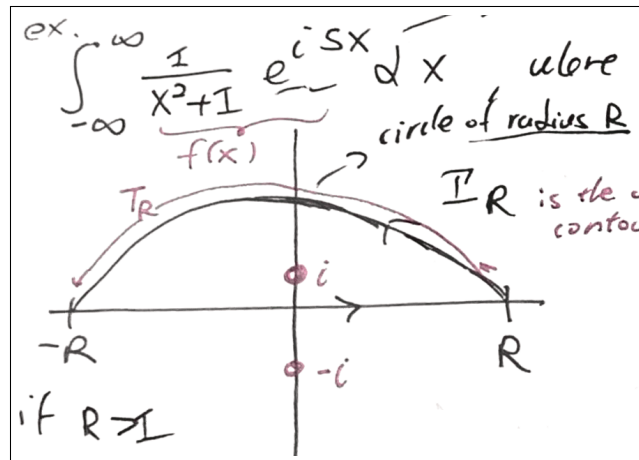 ex.
∫_{-∞}^{∞} 1/(x²+1) e^{i5x} dx where
f(x)
circle of radius R
T_R
Γ_R is the
i
-R
R
-i
if R>1